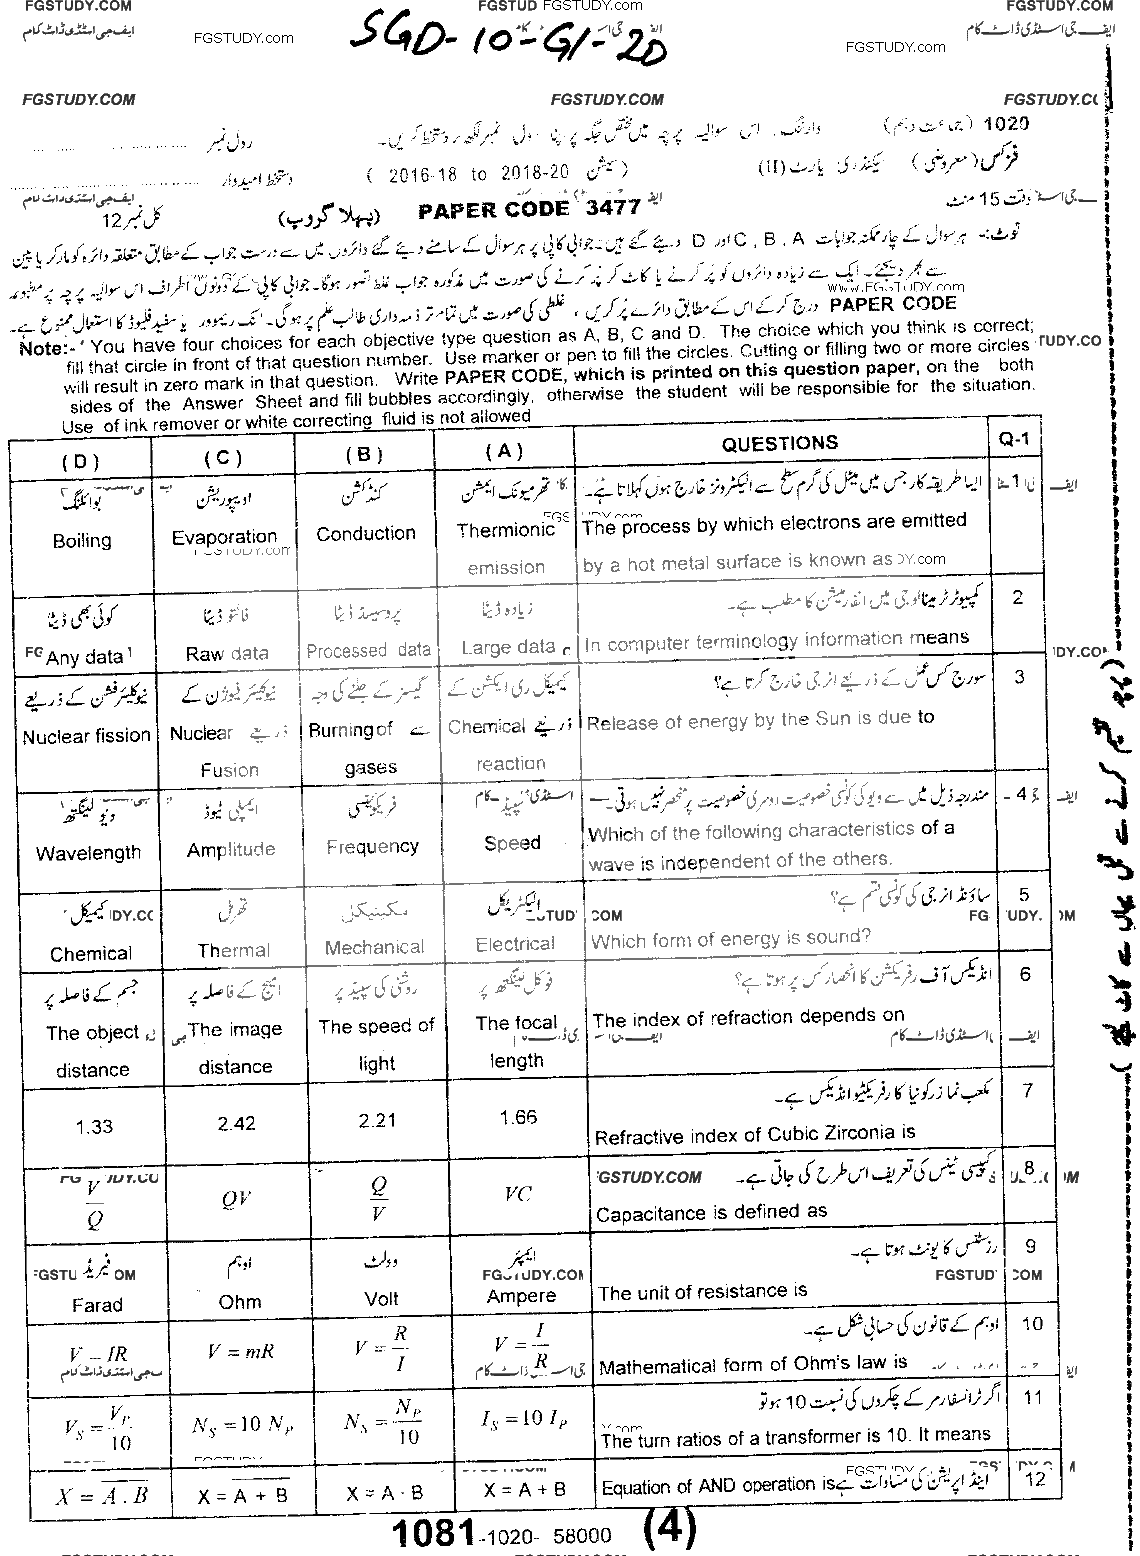 FGSTUDY.COM FGSTUD FGSTUDY.com FGSTUDY.COM
ایف جی اسٹڈی ڈاٹ کام FGSTUDY.com SGD-10-G1-20 FGSTUDY.com ایف جی اسٹڈی ڈاٹ کام
FGSTUDY.COM FGSTUDY.COM FGSTUDY.CO
1020 (جماعت دہم) وارننگ۔ اس سوالیہ پرچہ میں مختص جگہ پر اپنا رول نمبر لکھ کر دستخط کریں۔ رول نمبر
فزکس (معروضی) سیکنڈری پارٹ (II) (سیشن 2018-20 to 2016-18) دستخط امیدوار
وقت 15 منٹ PAPER CODE 3477 (پہلا گروپ) کل نمبر 12
نوٹ:- ہر سوال کے چار ممکنہ جوابات A ، B ، C اور D دیئے گئے ہیں۔ جوابی کاپی پر ہر سوال کے سامنے دیئے گئے دائروں میں سے درست جواب کے مطابق متعلقہ دائرہ کو مارکر یا پین
سے بھر دیجئے۔ ایک سے زیادہ دائروں کو پُر کرنے یا کاٹ کر پُر کرنے کی صورت میں مذکورہ جواب غلط تصور ہوگا۔ جوابی کاپی کے دونوں اطراف اس سوالیہ پرچہ پر مطبوعہ
www.FGSTUDY.com
PAPER CODE درج کر کے اس کے مطابق دائرے پُر کریں ، غلطی کی صورت میں تمام تر ذمہ داری طالب علم پر ہوگی۔ انک ریموور یا سفید فلیوڈ کا استعمال ممنوع ہے۔
Note:- You have four choices for each objective type question as A, B, C and D. The choice which you think is correct;
fill that circle in front of that question number. Use marker or pen to fill the circles. Cutting or filling two or more circles
will result in zero mark in that question. Write PAPER CODE, which is printed on this question paper, on the both
sides of the Answer Sheet and fill bubbles accordingly, otherwise the student will be responsible for the situation.
Use of ink remover or white correcting fluid is not allowed
(D) (C) (B) (A) QUESTIONS Q-1
بوائلنگ ایوپوریشن کنڈکشن تھرمیونک ایمشن ایسا طریقہ کار جس میں میٹل کی گرم سطح سے الیکٹرونز خارج ہوں کہلاتا ہے۔ 1
Boiling Evaporation Conduction Thermionic The process by which electrons are emitted
FGSTUDY.com emission by a hot metal surface is known as
کوئی بھی ڈیٹا خام ڈیٹا پروسیسڈ ڈیٹا زیادہ ڈیٹا کمپیوٹر ٹرمینالوجی میں انفرمیشن کا مطلب ہے۔ 2
Any data Raw data Processed data Large data In computer terminology information means
نیوکلیئر فشن کے ذریعے نیوکلیئر فیوژن کے گیسز کے جلنے کی وجہ کیمیکل ری ایکشن کے سورج کس عمل کے ذریعے انرجی خارج کرتا ہے؟ 3
Nuclear fission Nuclear ذریعے Burning of سے Chemical ذریعے Release of energy by the Sun is due to
Fusion gases reaction
ویو لینگتھ ایمپلی ٹیوڈ فریکوئنسی سپیڈ مندرجہ ذیل میں سے ویو کی کونسی خصوصیت دوسری خصوصیت پر منحصر نہیں ہوتی۔ 4
Wavelength Amplitude Frequency Speed Which of the following characteristics of a
wave is independent of the others.
کیمیکل تھرمل مکینیکل الیکٹریکل ساؤنڈ انرجی کی کونسی قسم ہے؟ 5
Chemical Thermal Mechanical Electrical Which form of energy is sound?
جسم کے فاصلہ پر امیج کے فاصلہ پر روشنی کی سپیڈ پر فوکل لینگتھ پر انڈیکس آف رفریکشن کا انحصار کس پر ہوتا ہے؟ 6
The object The image The speed of The focal The index of refraction depends on
distance distance light length
مکعب نما زرکونیا کا رفریکٹو انڈیکس ہے۔ 7
1.33 2.42 2.21 1.66 Refractive index of Cubic Zirconia is
V/Q QV Q/V VC کپیسی ٹینس کی تعریف اس طرح کی جاتی ہے۔ 8
Capacitance is defined as
فیرڈ اوہم وولٹ ایمپئر رزسٹنس کا یونٹ ہوتا ہے۔ 9
Farad Ohm Volt Ampere The unit of resistance is
V = IR V = mR V = R/I V = I/R اوہم کے قانون کی حسابی شکل ہے۔ 10
Mathematical form of Ohm's law is
V_S = V_P/10 N_S = 10 N_P N_S = N_P/10 I_S = 10 I_P اگر ٹرانسفارمر کے چکروں کی نسبت 10 ہو تو 11
The turn ratios of a transformer is 10. It means
X = \overline{A . B} X = \overline{A + B} X = A · B X = A + B Equation of AND operation is اینڈ آپریشن کی مساوات ہے 12
1081-1020- 58000 (4)